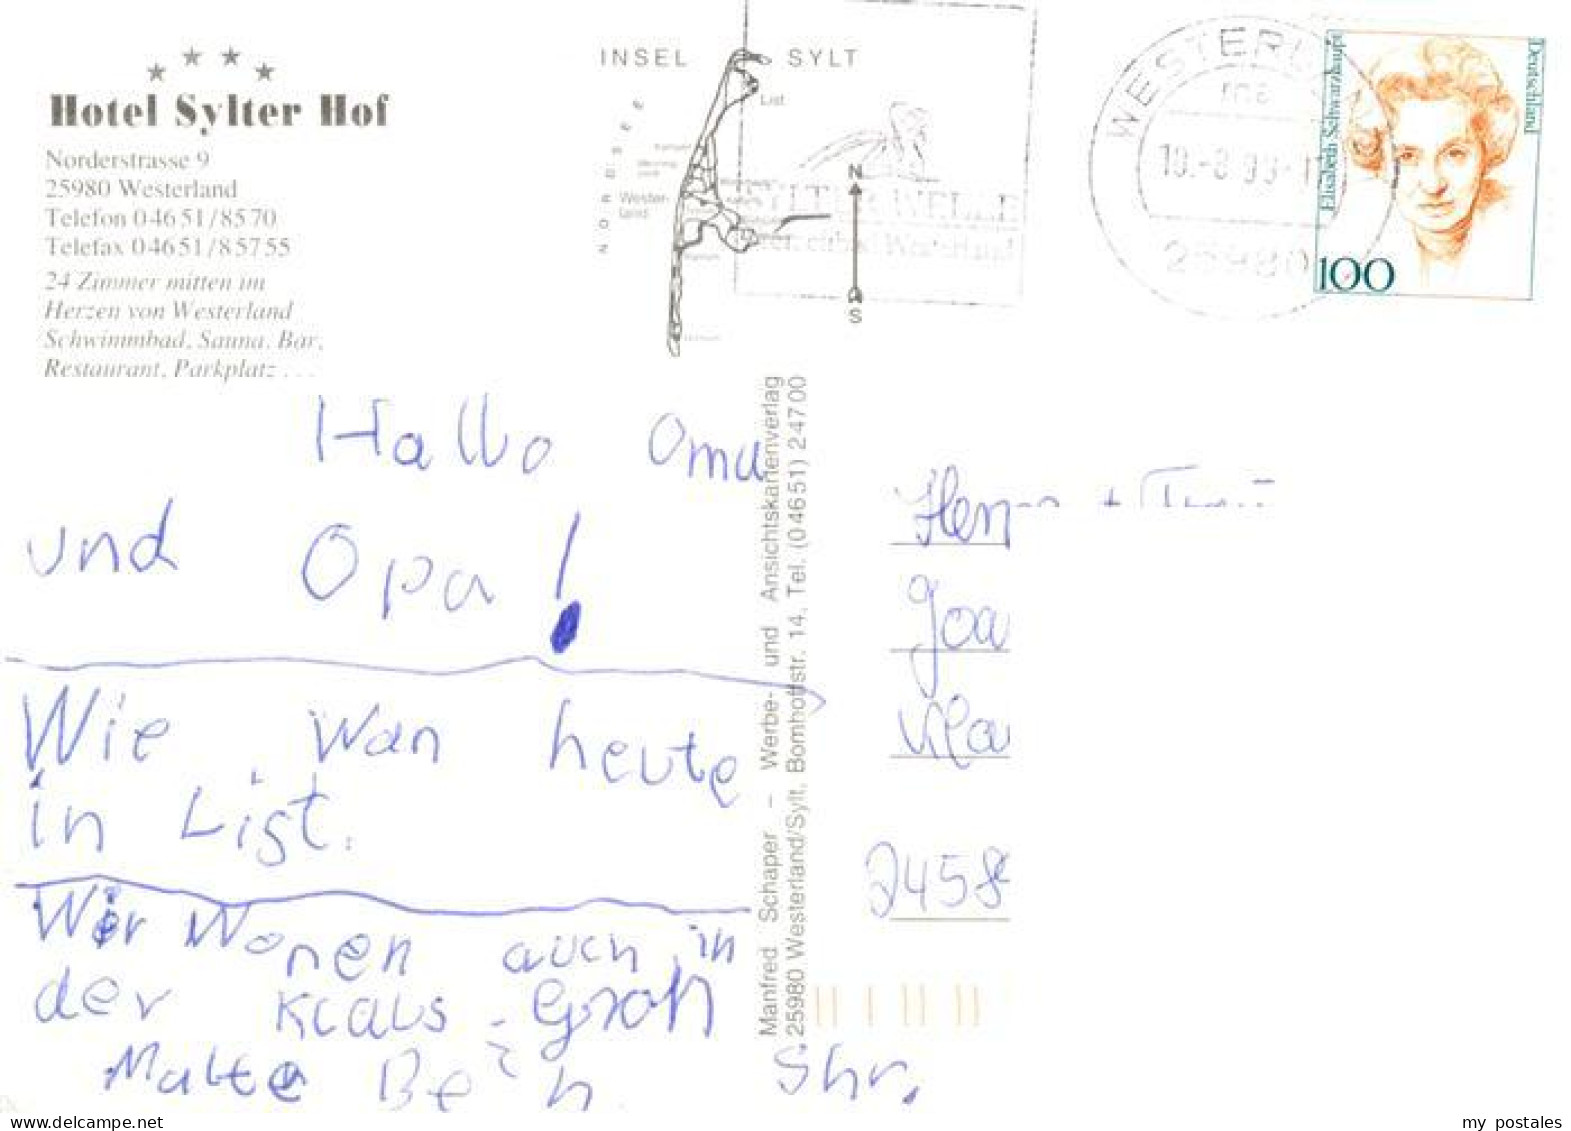 Hotel Sylter Hof
Norderstrasse 9
25980 Westerland
Telefon 0 46 51 / 85 70
Telefax 0 46 51 / 8 57 55
24 Zimmer mitten im
Herzen von Westerland
Schwimmbad, Sauna, Bar,
Restaurant, Parkplatz . . .
INSEL SYLT
NORDSEE
List
Wester-
land
N
S
WESTERL
25980
Elisabeth Schwarzhaupt
Deutschland
100
Manfred Schaper – Werbe- und Ansichtskartenverlag
25980 Westerland/Sylt, Bomhoffstr. 14, Tel. (04651) 24700
Hallo Oma
und Opa!
Wie wan heute
in List.
Wir Wonen auch in
der Klaus-Groh
Shr.
Malte Bein
Joa
2458
my_postales
Delcampe.net